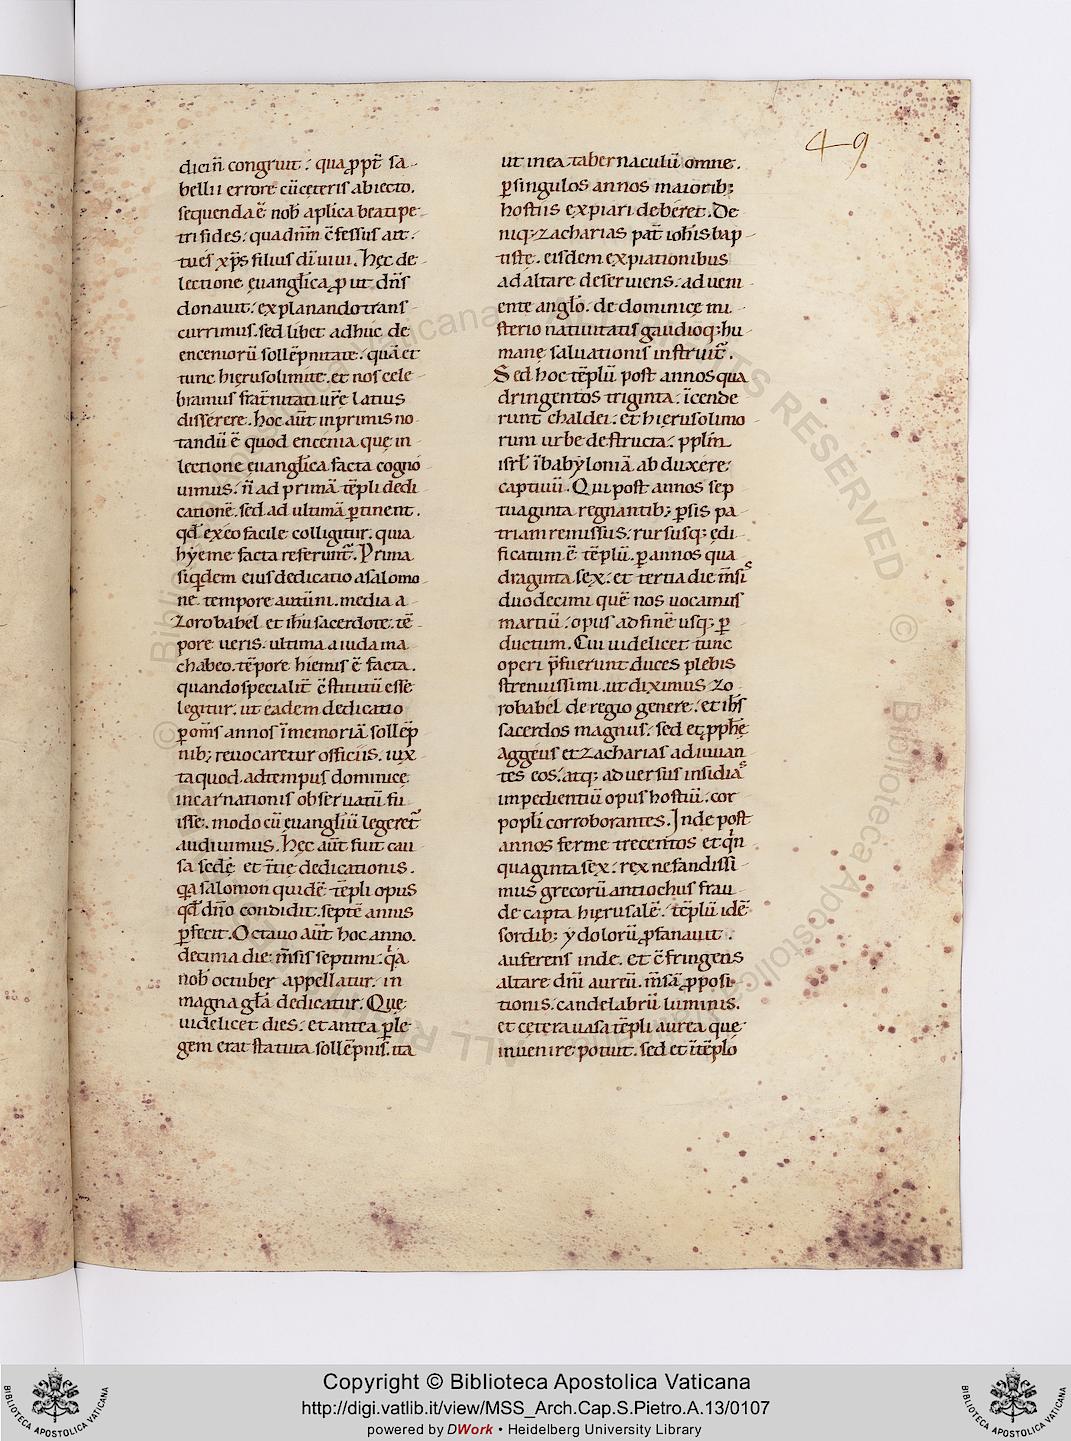 49
dicin̄ congruit. qua ꝓpt̄ sa
bellii errore cū ceteris abiecto.
sequenda ē nob̄ aplica beati pe
tri fides. qua dn̄m c̄fessus ait.
tu es xp̄s filius dī uiui. Hęc de
lectione euangl̄ica ꝓ ut dn̄s
donauit. explanando trans
currimus. sed libet adhuc de
encenioru̅ sollēpnitate. quā et
tunc hierusolimite. et nos cele
bramus frat̄nitati ur̄e latius
disserere. hoc aut̄ in primis no
tandū ē quod encenia que in
lectione euangl̄ica facta cogno
uimus. n̄ ad primā tēpli dedi
cationē. sed ad ultimā ꝑtinent.
qd̄ ex eo facile colligitur. quia
hyeme facta referunt̄. Prima
siqdem eius dedicatio a salomo
ne. tempore autūni. media a
zorobabel et ih̄u sacerdote. tē
pore ueris. ultima a iuda ma
chabeo. tēpore hiemis ē facta.
quando specialit̄ c̄stitutū esse
legitur. ut eadem dedicatio
ꝑ om̄s annos ī memoriā sollēp
nib; reuocaretur officiis. iux
ta quod ad tempus dominice
incarnationis obseruatū fu
isse. modo cū euangliū legeret̄
audiuimus. Hęc aut̄ fuit cau
sa sedē et t̄tie dedicationis.
qa salomon quidē tēpli opus
qd̄ dn̄o condidit. septē annis
ꝑfecit. Octauo aut̄ hoc anno.
decima die m̄sis septimi. qa
nob̄ october appellatur. in
magna gl̄a dedicatur. Que
uidelicet dies. et antea ꝑ le
gem erat statuta sollēpnis. ita
ut in ea tabernaculū omne.
ꝑ singulos annos maiorib;
hostiis expiari deberet. De
niq; zacharias pat̄ ioh̄is bap
tiste. eisdem expiationibus
ad altare deseruiens. ad ueni
ente anglo. de dominice mi
sterio natiuitatis gaudioq; hu
mane saluationis instruit̄.
Sed hoc tēplū post annos qua
dringentos triginta. īcende
runt chaldei. et hierusolimo
rum urbe destructa. pplm̄
isrl̄ ī babyloniā abduxere
captiuū. Qui post annos sep
tuaginta regnantib; ꝑsis pa
triam remissus. rursusq; edi
ficatum ē tēplū. ꝑ annos qua
draginta sex. et tertia die m̄sis
duodecimi quē nos uocamus
martiū. opus ad finē usq; ꝑ
ductum. Cui uidelicet tunc
operi p̄fuerunt duces plebis
strenuissimi. ut diximus zo
robabel de regio genere. et ih̄s
sacerdos magnus. sed et pph̄e
aggeus et zacharias adiuuan
tes eos. atq; aduersus insidias
impedientiū opus hostiū. cor
popli corroborantes. Inde post
annos ferme trecentos et qn̄
quaginta sex. rex nefandissi
mus grecorū antiochus frau
de capta hierusalē. tēplū idē
sordib; ydolorū ꝓfanauit.
auferens inde. et c̄fringens
altare dn̄i aureū. m̄sā ꝓposi
tionis. candelabrū luminis.
et cetera uasa tēpli aurea que
inuenire potuit. sed et ī tēplo
Copyright © Biblioteca Apostolica Vaticana
http://digi.vatlib.it/view/MSS_Arch.Cap.S.Pietro.A.13/0107
powered by DWork • Heidelberg University Library
BIBLIOTECA APOSTOLICA VATICANA
BIBLIOTECA APOSTOLICA VATICANA